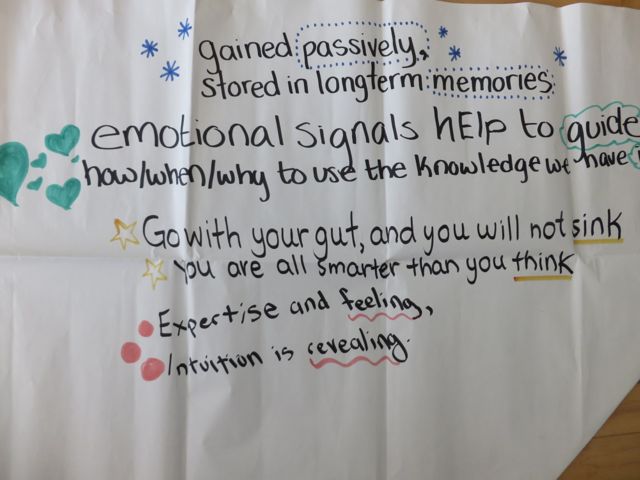 gained passively,
stored in longterm memories
emotional signals hELp to guide
how/when/why to use the knowledge we have
Go with your gut, and you will not sink
you are all smarter than you think
Expertise and feeling,
Intuition is revealing.